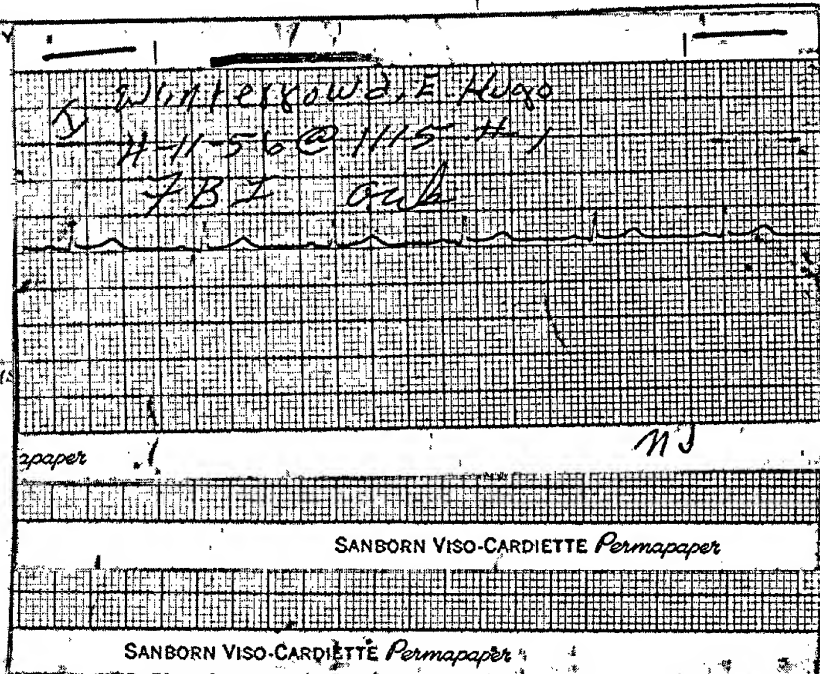 I Winterrowd, E Hugo
4-11-56 @ 1115 H-1
FBI
apaper
SANBORN VISO-CARDIETTE Permapaper
SANBORN VISO-CARDIETTE Permapaper